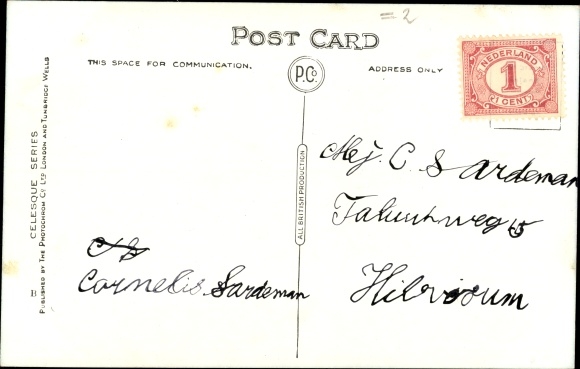 = 2
POST CARD
THIS SPACE FOR COMMUNICATION.
P.Co
ADDRESS ONLY
NEDERLAND
1
1 CENT
CELESQUE SERIES
PUBLISHED BY THE PHOTOCHROM CO LTD LONDON AND TUNBRIDGE WELLS
B
ALL BRITISH PRODUCTION
Mej. C Sardeman
15
Cornelis Sardeman